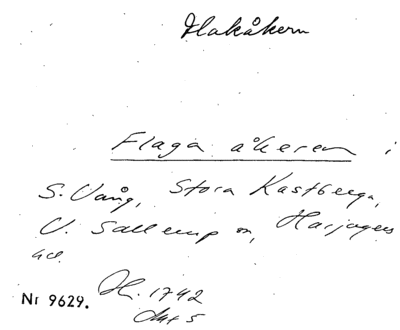 Flakåkern
Flaga åkeren i
S. Vång, Stora Kastberga,
V. Sallerup sn, Harjagers
hd.
H. 1742
Akt 5
Nr 9629.